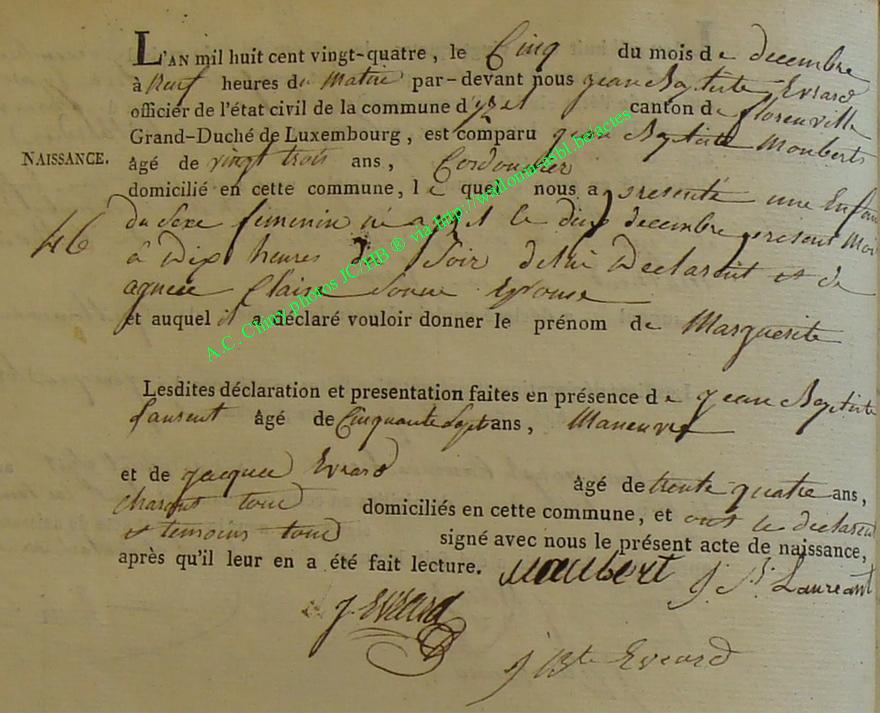 L'AN mil huit cent vingt-quatre, le Cinq du mois de decembre
à Neuf heures du Matin par-devant nous jean Baptiste Evrard
officier de l'état civil de la commune d' canton de florenville
Grand-Duché de Luxembourg, est comparu jean Baptiste Moubert
NAISSANCE.
âgé de vingt trois ans, Cordonnier
domicilié en cette commune, le quel nous a presenté une Enfant
46
du Sexe feminin né a le decembre present Mois
à Dix heures du Soir de lui Declarant et de
agnece Claise Son Epouse
et auquel il a déclaré vouloir donner le prénom de Marguerite
Lesdites déclaration et presentation faites en présence de jean Baptiste
Laurent âgé de Cinquante Sept ans, Maneuvre
et de jacque Evrard âgé de trente quatre ans,
domiciliés en cette commune, et ont le declarant
et temoins tous signé avec nous le présent acte de naissance,
après qu'il leur en a été fait lecture. Maubert J. B. Laureant
J. Evrard
J Bte Evrard
A.C. Chiny photos JC/HB ® via http://wallonia.asbl.be/actes